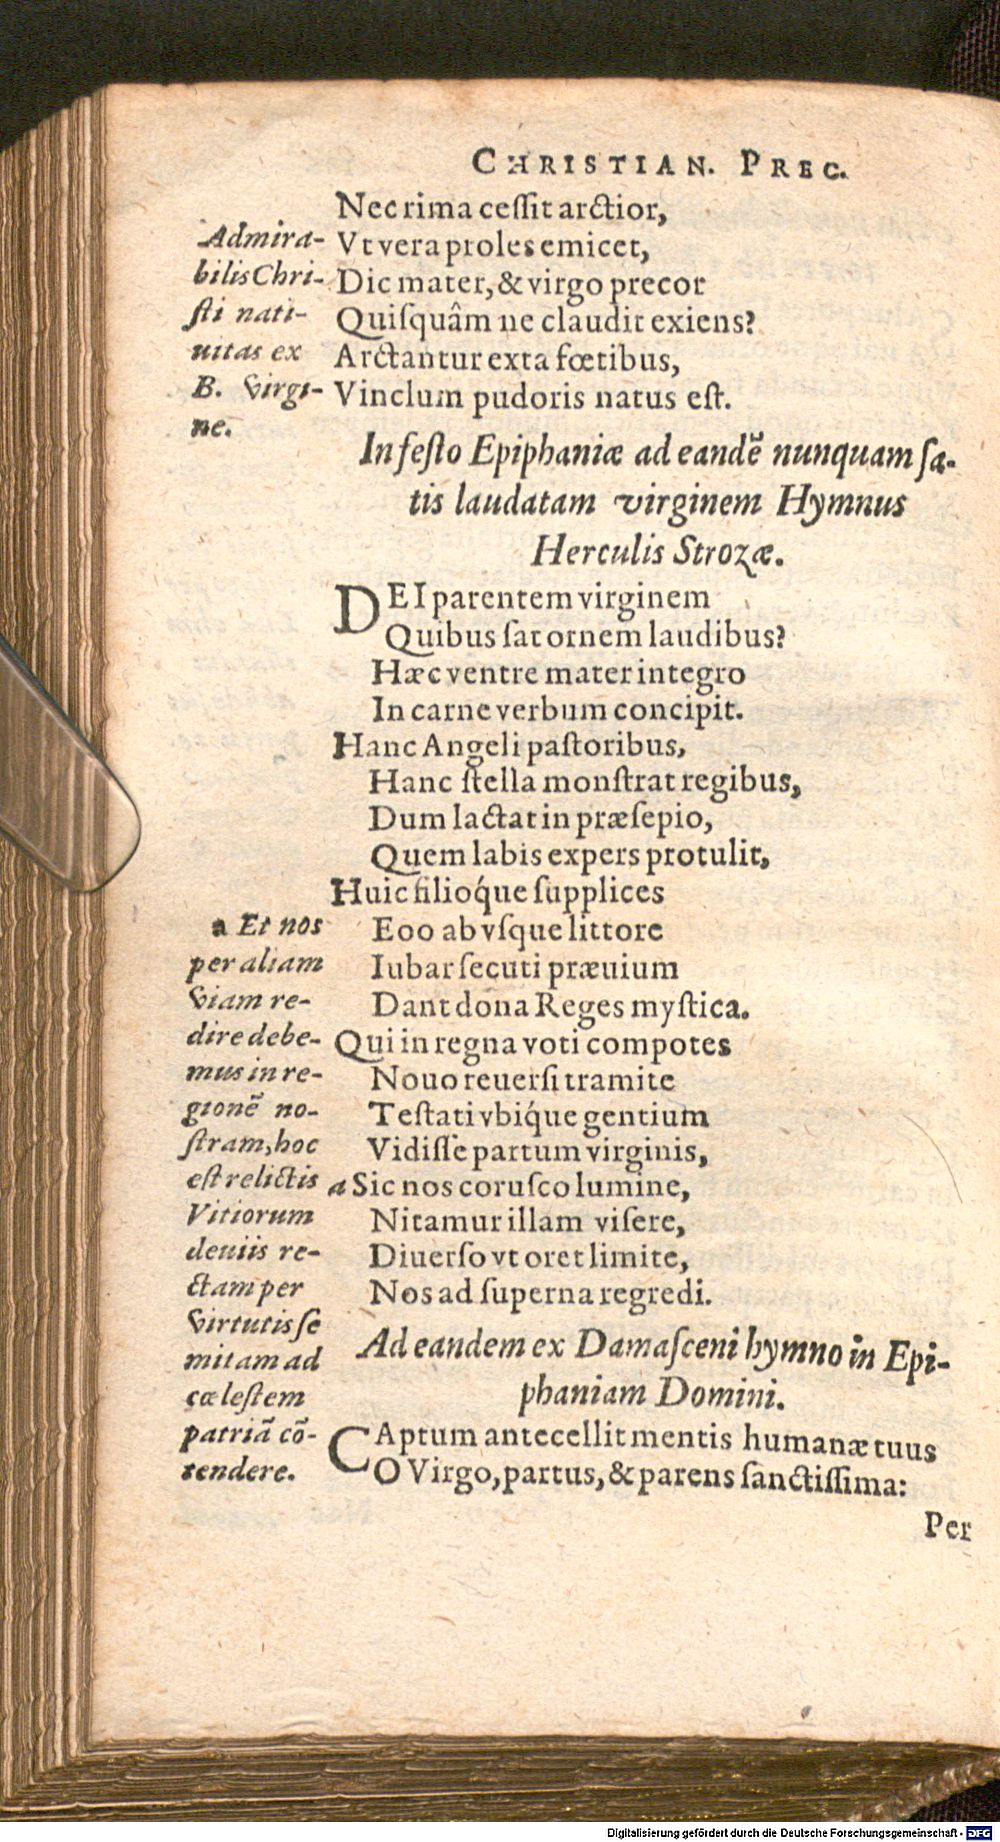 CHRISTIAN. PREC.
Nec rima cessit arctior,
Vt vera proles emicet,
Dic mater, & virgo precor
Quisquâm ne claudit exiens?
Arctantur exta fœtibus,
Vinclum pudoris natus est.
Admira-
bilis Chri-
sti nati-
uitas ex
B. Virgi-
ne.
In festo Epiphaniæ ad eandē nunquam sa-
tis laudatam virginem Hymnus
Herculis Strozæ.
DEI parentem virginem
Quibus sat ornem laudibus?
Hæc ventre mater integro
In carne verbum concipit.
Hanc Angeli pastoribus,
Hanc stella monstrat regibus,
Dum lactat in præsepio,
Quem labis expers protulit,
Huic filióque supplices
Eoo ab vsque littore
Iubar secuti præuium
Dant dona Reges mystica.
Qui in regna voti compotes
Nouo reuersi tramite
Testati vbíque gentium
Vidisse partum virginis,
a Sic nos corusco lumine,
Nitamur illam visere,
Diuerso vt oret limite,
Nos ad superna regredi.
a Et nos
per aliam
Viam re-
dire debe-
mus in re-
gionē no-
stram, hoc
est relictis
Vitiorum
deuiis re-
ctam per
Virtutis se
mitam ad
cælestem
patriã cō-
tendere.
Ad eandem ex Damasceni hymno in Epi-
phaniam Domini.
CAptum antecellit mentis humanæ tuus
O Virgo, partus, & parens sanctissima:
Per
Digitalisierung gefördert durch die Deutsche Forschungsgemeinschaft - DFG